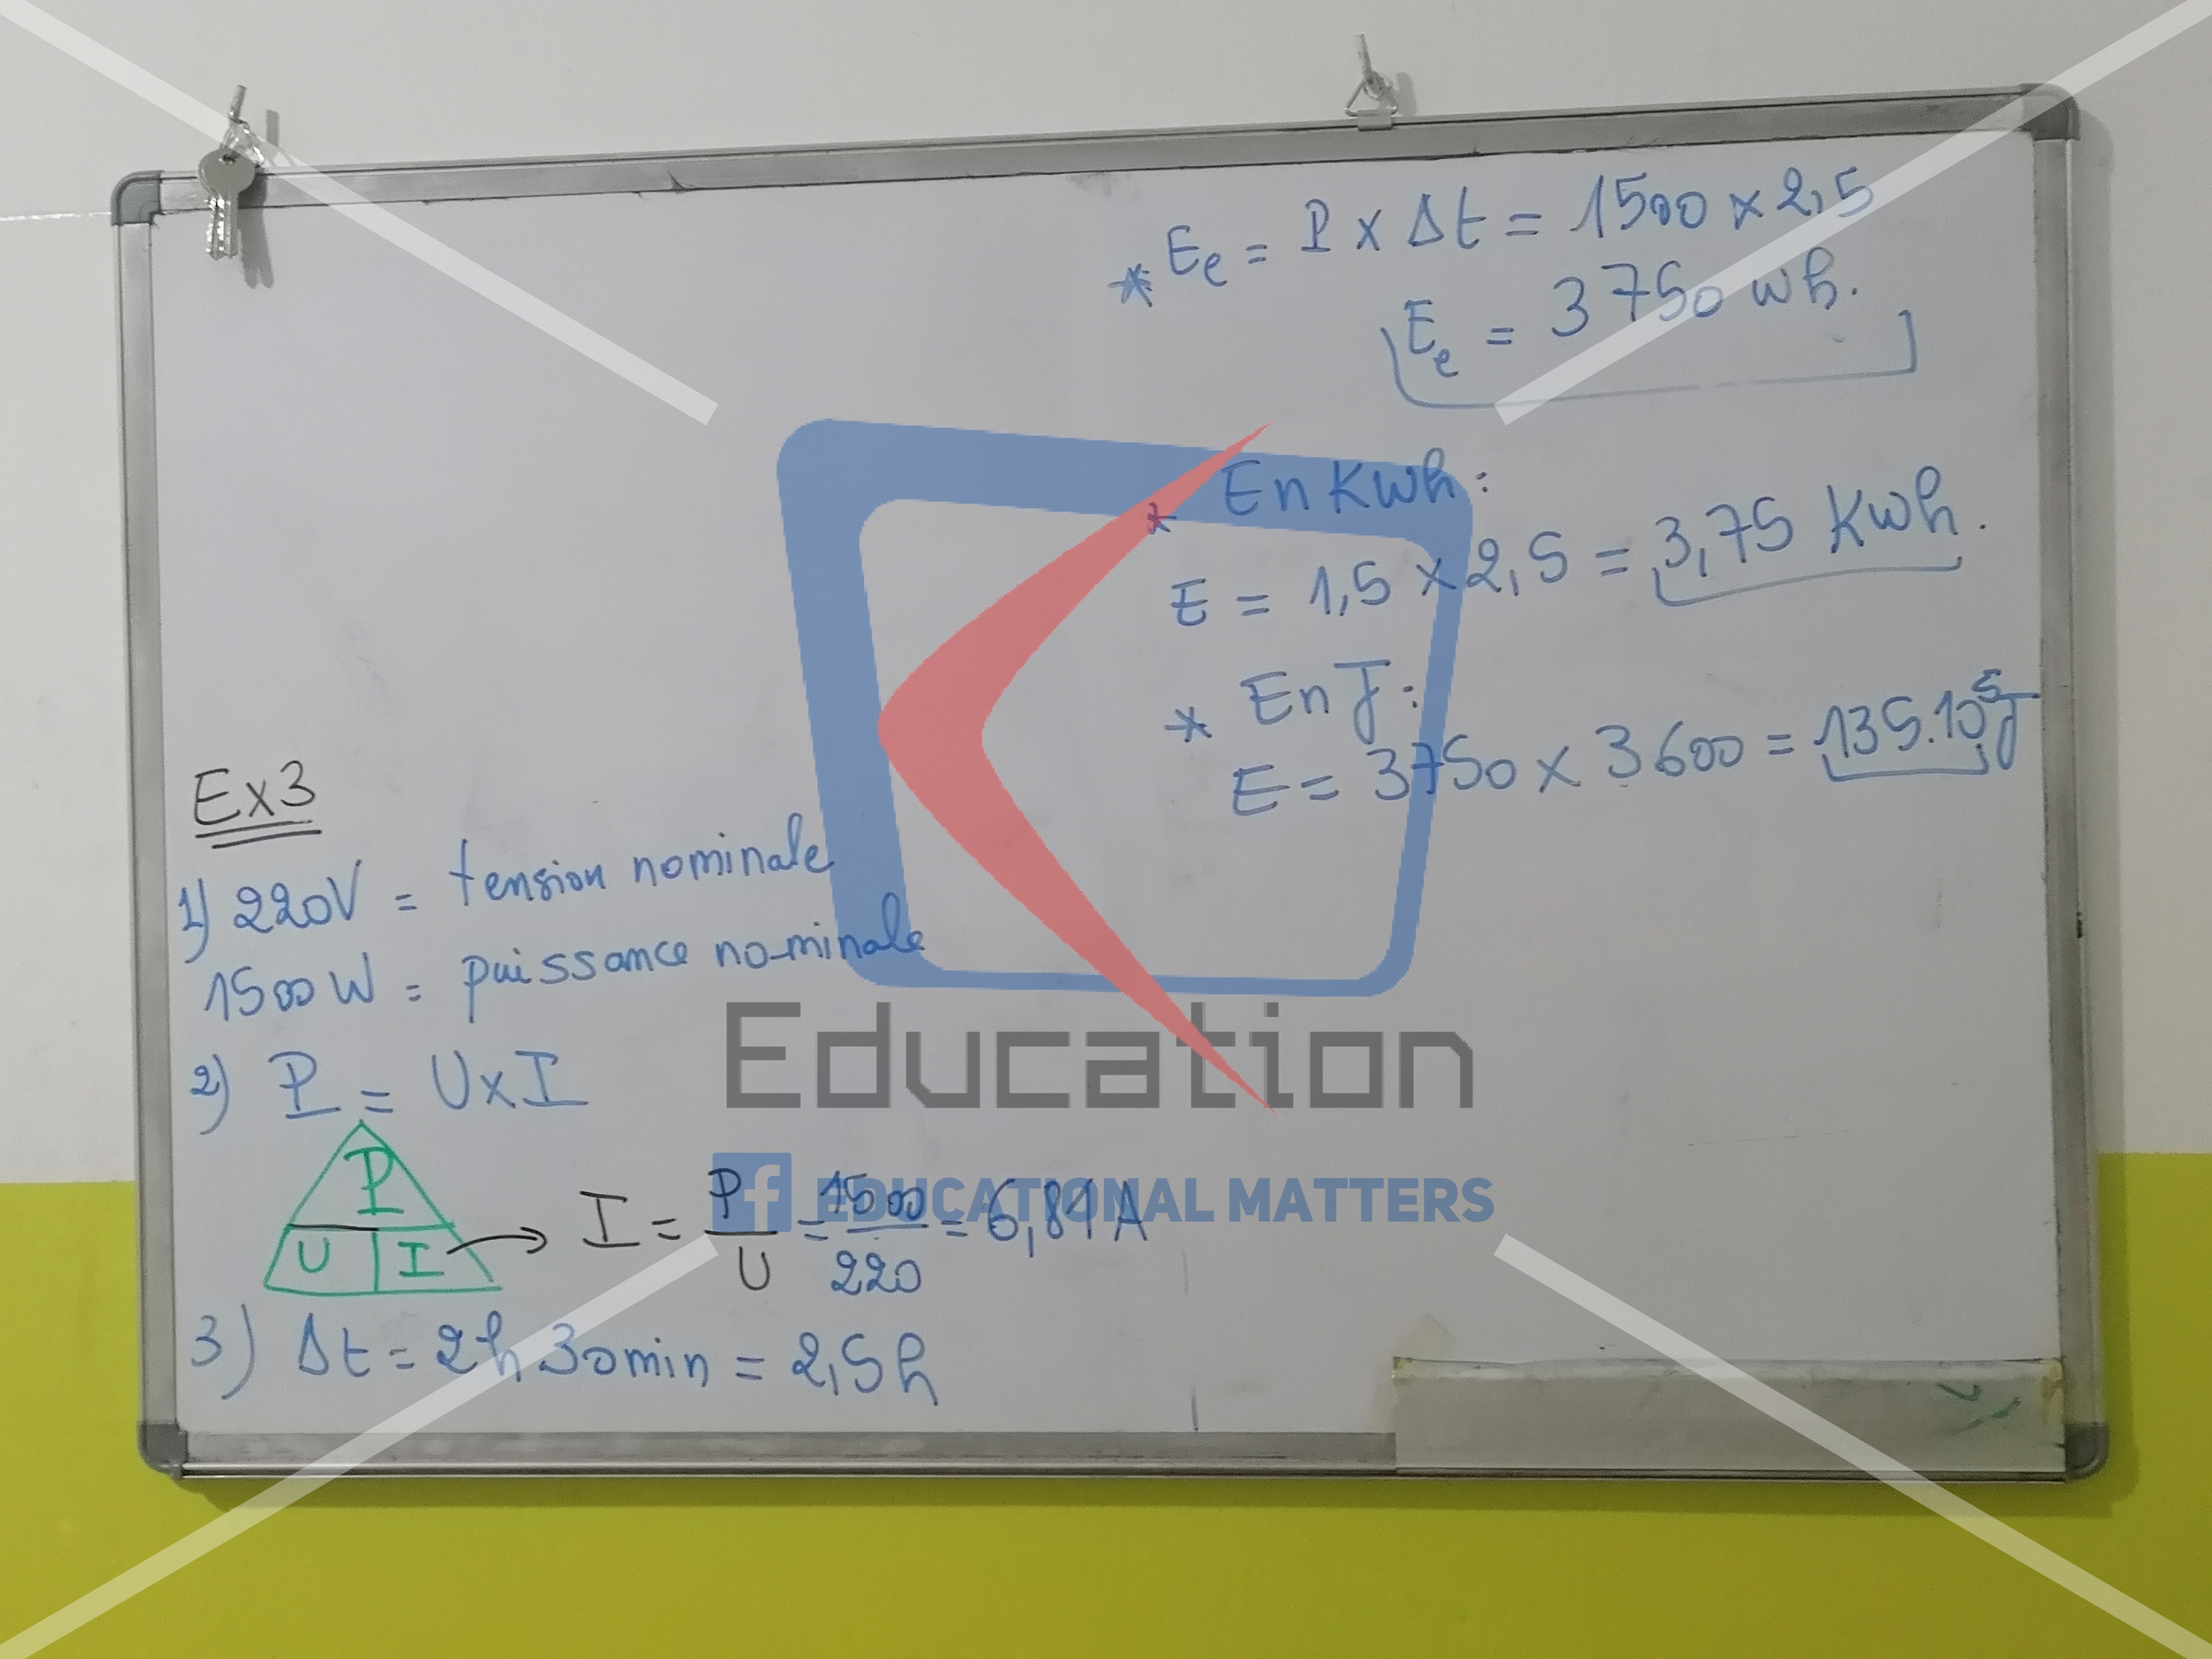 Ex3
1) 220V = tension nominale
1500 W = puissance nominale
2) P = U x I
P
U I → I = P/U = 1500/220 = 6,81 A
3) Δt = 2h 30min = 2,5h
* Ee = P x Δt = 1500 x 2,5
Ee = 3750 wh.
* En Kwh :
E = 1,5 x 2,5 = 3,75 Kwh.
* En J :
E = 3750 x 3600 = 135.10⁵ J
Education
f EDUCATIONAL MATTERS